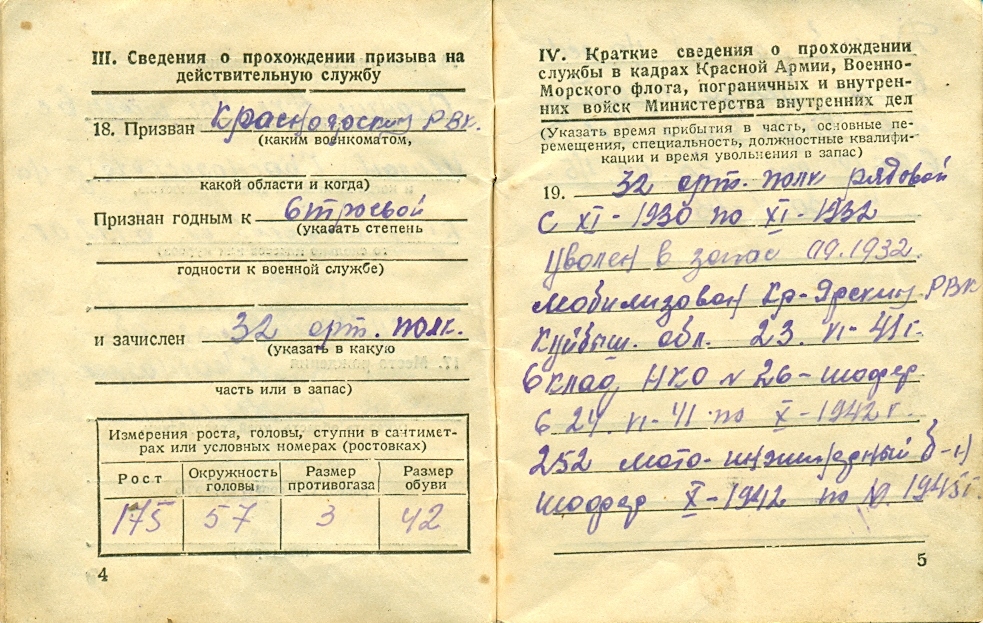 III. Сведения о прохождении призыва на
действительную службу
18. Призван Красноярским РВК.
(каким военкоматом,
какой области и когда)
Признан годным к строевой
(указать степень
годности к военной службе)
и зачислен 32 арт. полк.
(указать в какую
часть или в запас)
Измерения роста, головы, ступни в сантимет-
рах или условных номерах (ростовках)
Рост Окружность головы Размер противогаза Размер обуви
175 57 3 42
4
IV. Краткие сведения о прохождении
службы в кадрах Красной Армии, Военно-
Морского флота, пограничных и внутрен-
них войск Министерства внутренних дел
(Указать время прибытия в часть, основные пе-
ремещения, специальность, должностные квалифи-
кации и время увольнения в запас)
19. 32 арт. полк рядовой
с XI-1930 по XI-1932
Уволен в запас 1932.
Мобилизован Кр-Ярским РВК
Куйбыш. обл. 23. VI-41 г.
в склад НКО N 26 - шофер
с 24. VI-41 по X-1942 г.
252 мото-инженерный б-н
шофер X-1942 по 1945 г.
5